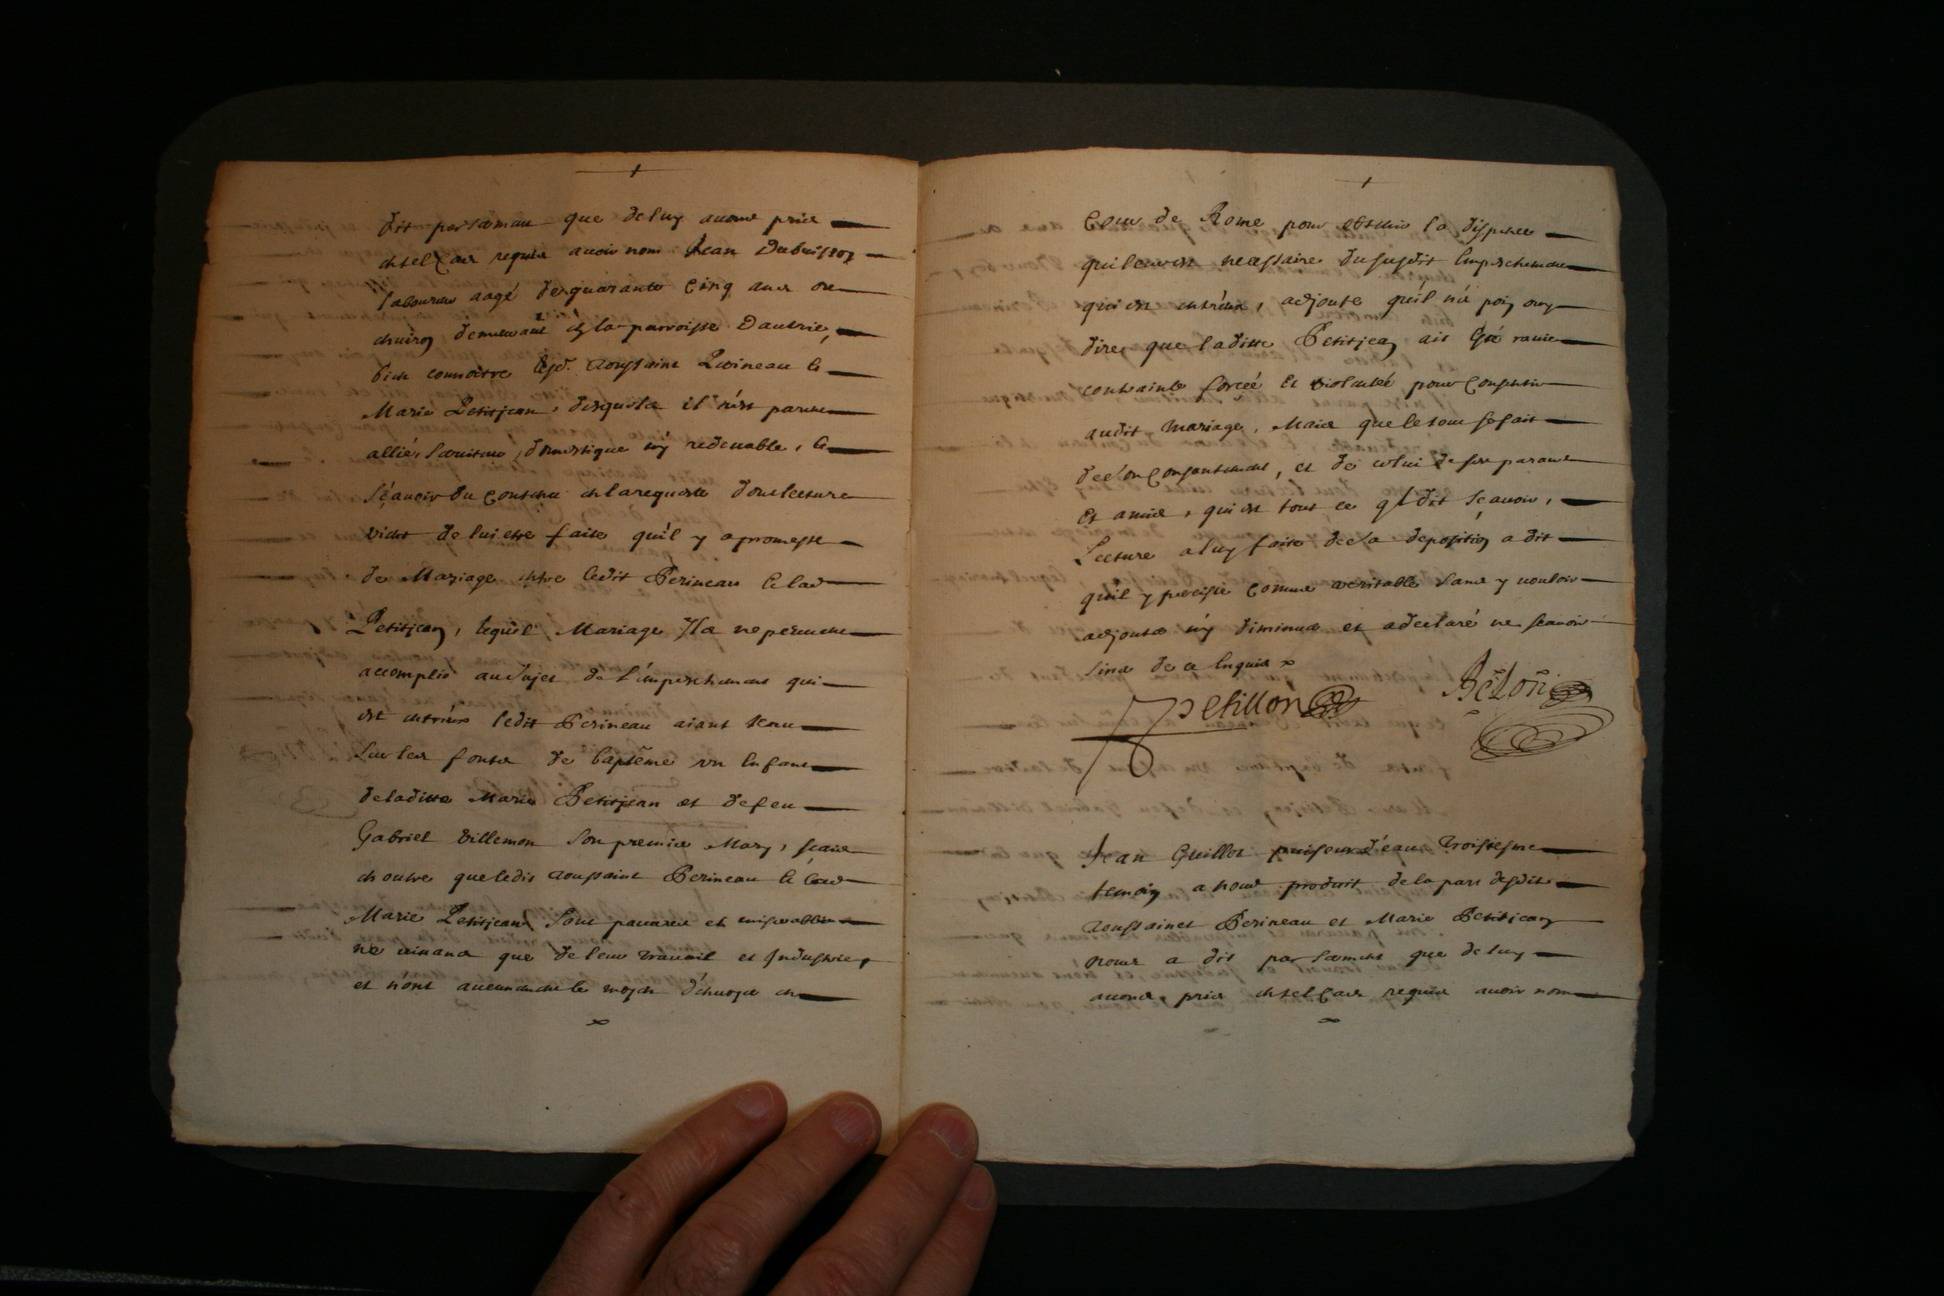 dit par serman que de luy avons pris
et tel cas requis avoir nom Jean Dubuisson
laboureur aagé de quarante cinq ans ou
environ demeurant en la parroisse Dautrie,
bien connoitre lesd. Toussaint Perineau &
Marie Petitjean, desquels il n'est parent
allié, serviteur, domestique ny redevable, &
sçavoir du contenu en la requeste dont lecture
vient de lui etre faite qu'il y a promesse
de Mariage entre ledit Perineau & lad
Petitjean, lequel Mariage ils ne peuvent
accomplir au sujet de l'empeschement qui
est entr'eux ledit Perineau aiant tenu
sur les fonts de baptême un enfant
de laditte Marie Petitjean et de feu
Gabriel Villemon son premier Mary, sçait
en outre que ledit Toussaint Perineau & lad
Marie Petitjean sont pauvres et miserables
ne vivans que de leur travail et Industrie,
et n'ont aucunement le moyen d'envoyer en
Cour de Rome pour obtenir la dispense
qui leur est necessaire du susdit Empeschement
qui est entr'eux, adjoute qu'il n'a point ouy
dire que laditte Petitjean ait été ravie
contrainte forcée et violentée pour Consentir
audit Mariage, Mais que le tout se fait
de son Consentement, et de celui de ses parans
et amis, qui est tout ce q'l dit sçavoir,
Lecture a luy faite de sa deposition a dit
qu'il y persiste comme veritable sans y vouloir
adjouter ny diminuer et a declaré ne sçavoir
siner de ce Enquis
Petillon
Bélon
Jean Guillot puiseur d'eau Troisiesme
temoin a nous produit de la part desdits
Toussainct Perineau et Marie Petitjean
nous a dit par serment que de luy
avons pris et tel cas requis avoir nom